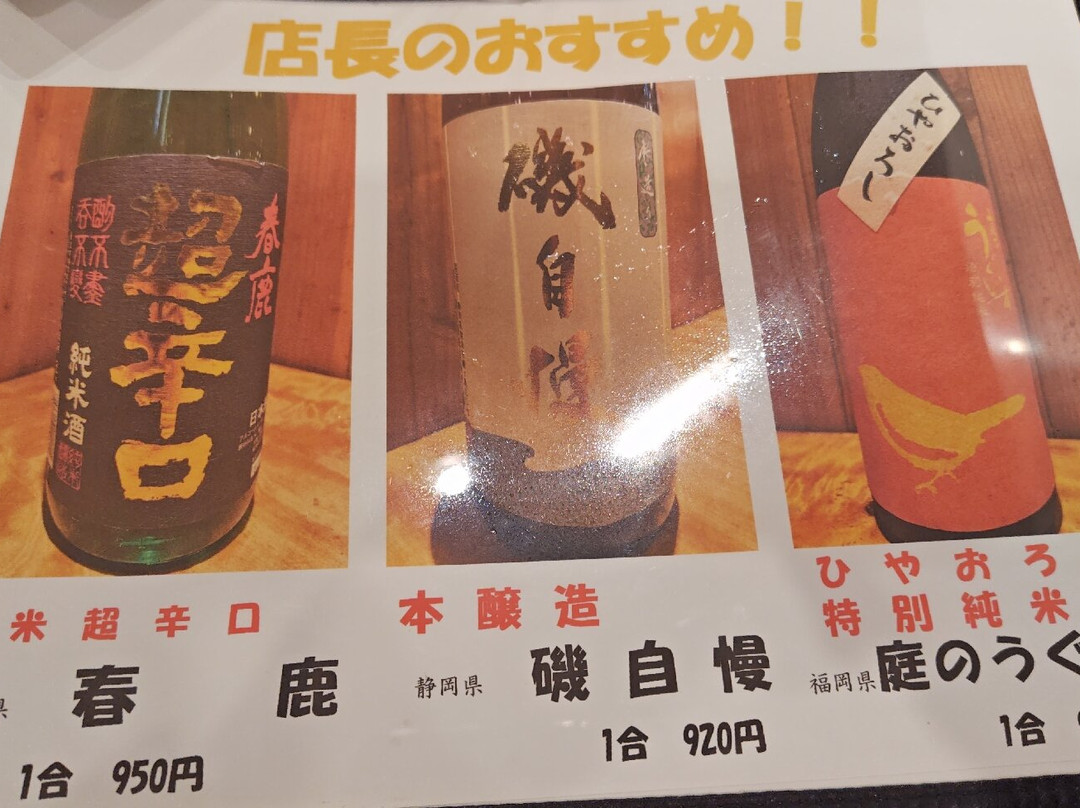 店長のおすすめ！！
春鹿
超辛口
酌不盡
呑不
純米酒
磯自慢
ひやおろし
米超辛口
県 春鹿
1合 950円
本醸造
静岡県 磯自慢
1合 920円
ひやおろ
特別純米
福岡県 庭のうぐ
1合